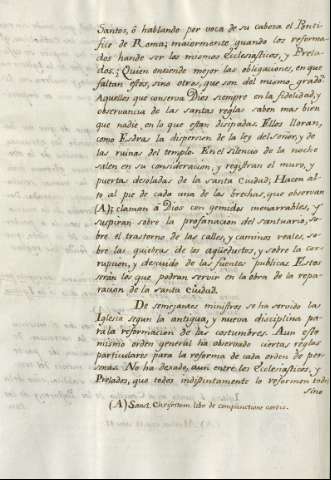 Santos, ó hablando por voca de su cabeza el Ponti-
fice de Roma; maiormente quando los reforma-
dos hande ser los mismos Eclesiasticos, y Prela-
dos. ¿Quien entiende mejor las obligaciones, en que
faltan estos, sino otros, que son del mismo grado?
Aquellos que conserva Dios siempre en la fidelidad, y
observancia de las santas reglas saben mas bien
que nadie, en lo que estan disipadas. Ellos lloran,
como Esdras la dispersion de la ley del señor, y de
las ruinas del templo. En el silencio de la noche
salen en su consideracion, y registran el muro, y
puertas desoladas de la santa Ciudad; Hacen al-
to al pie de cada una de las brechas, que observan
(A); claman á Dios con gemidos inenarrables, y
suspiran sobre la profanacion del santuario, so-
bre el trastorno de las calles, y caminos reales, so-
bre las quiebras de los aqüeductos, y sobre la cor-
rupcion, y descuido de las fuentes publicas. Estos
serán los que podran servir en la obra de la repa-
racion de la santa Ciudad.
De semejantes ministros se ha servido la
Iglesia segun la antigua, y nueva disciplina pa-
ra la reformacion de las costumbres. Aun este
mismo orden general ha observado ciertas reglas
particulares para la reforma de cada orden de per-
sonas. No ha dexado, aun entre los Eclesiasticos, y
Prelados, que todos indistintamente lo reformen todo
sino
(A) Sanct. Chrysostom. libr. de compunctione cordis.